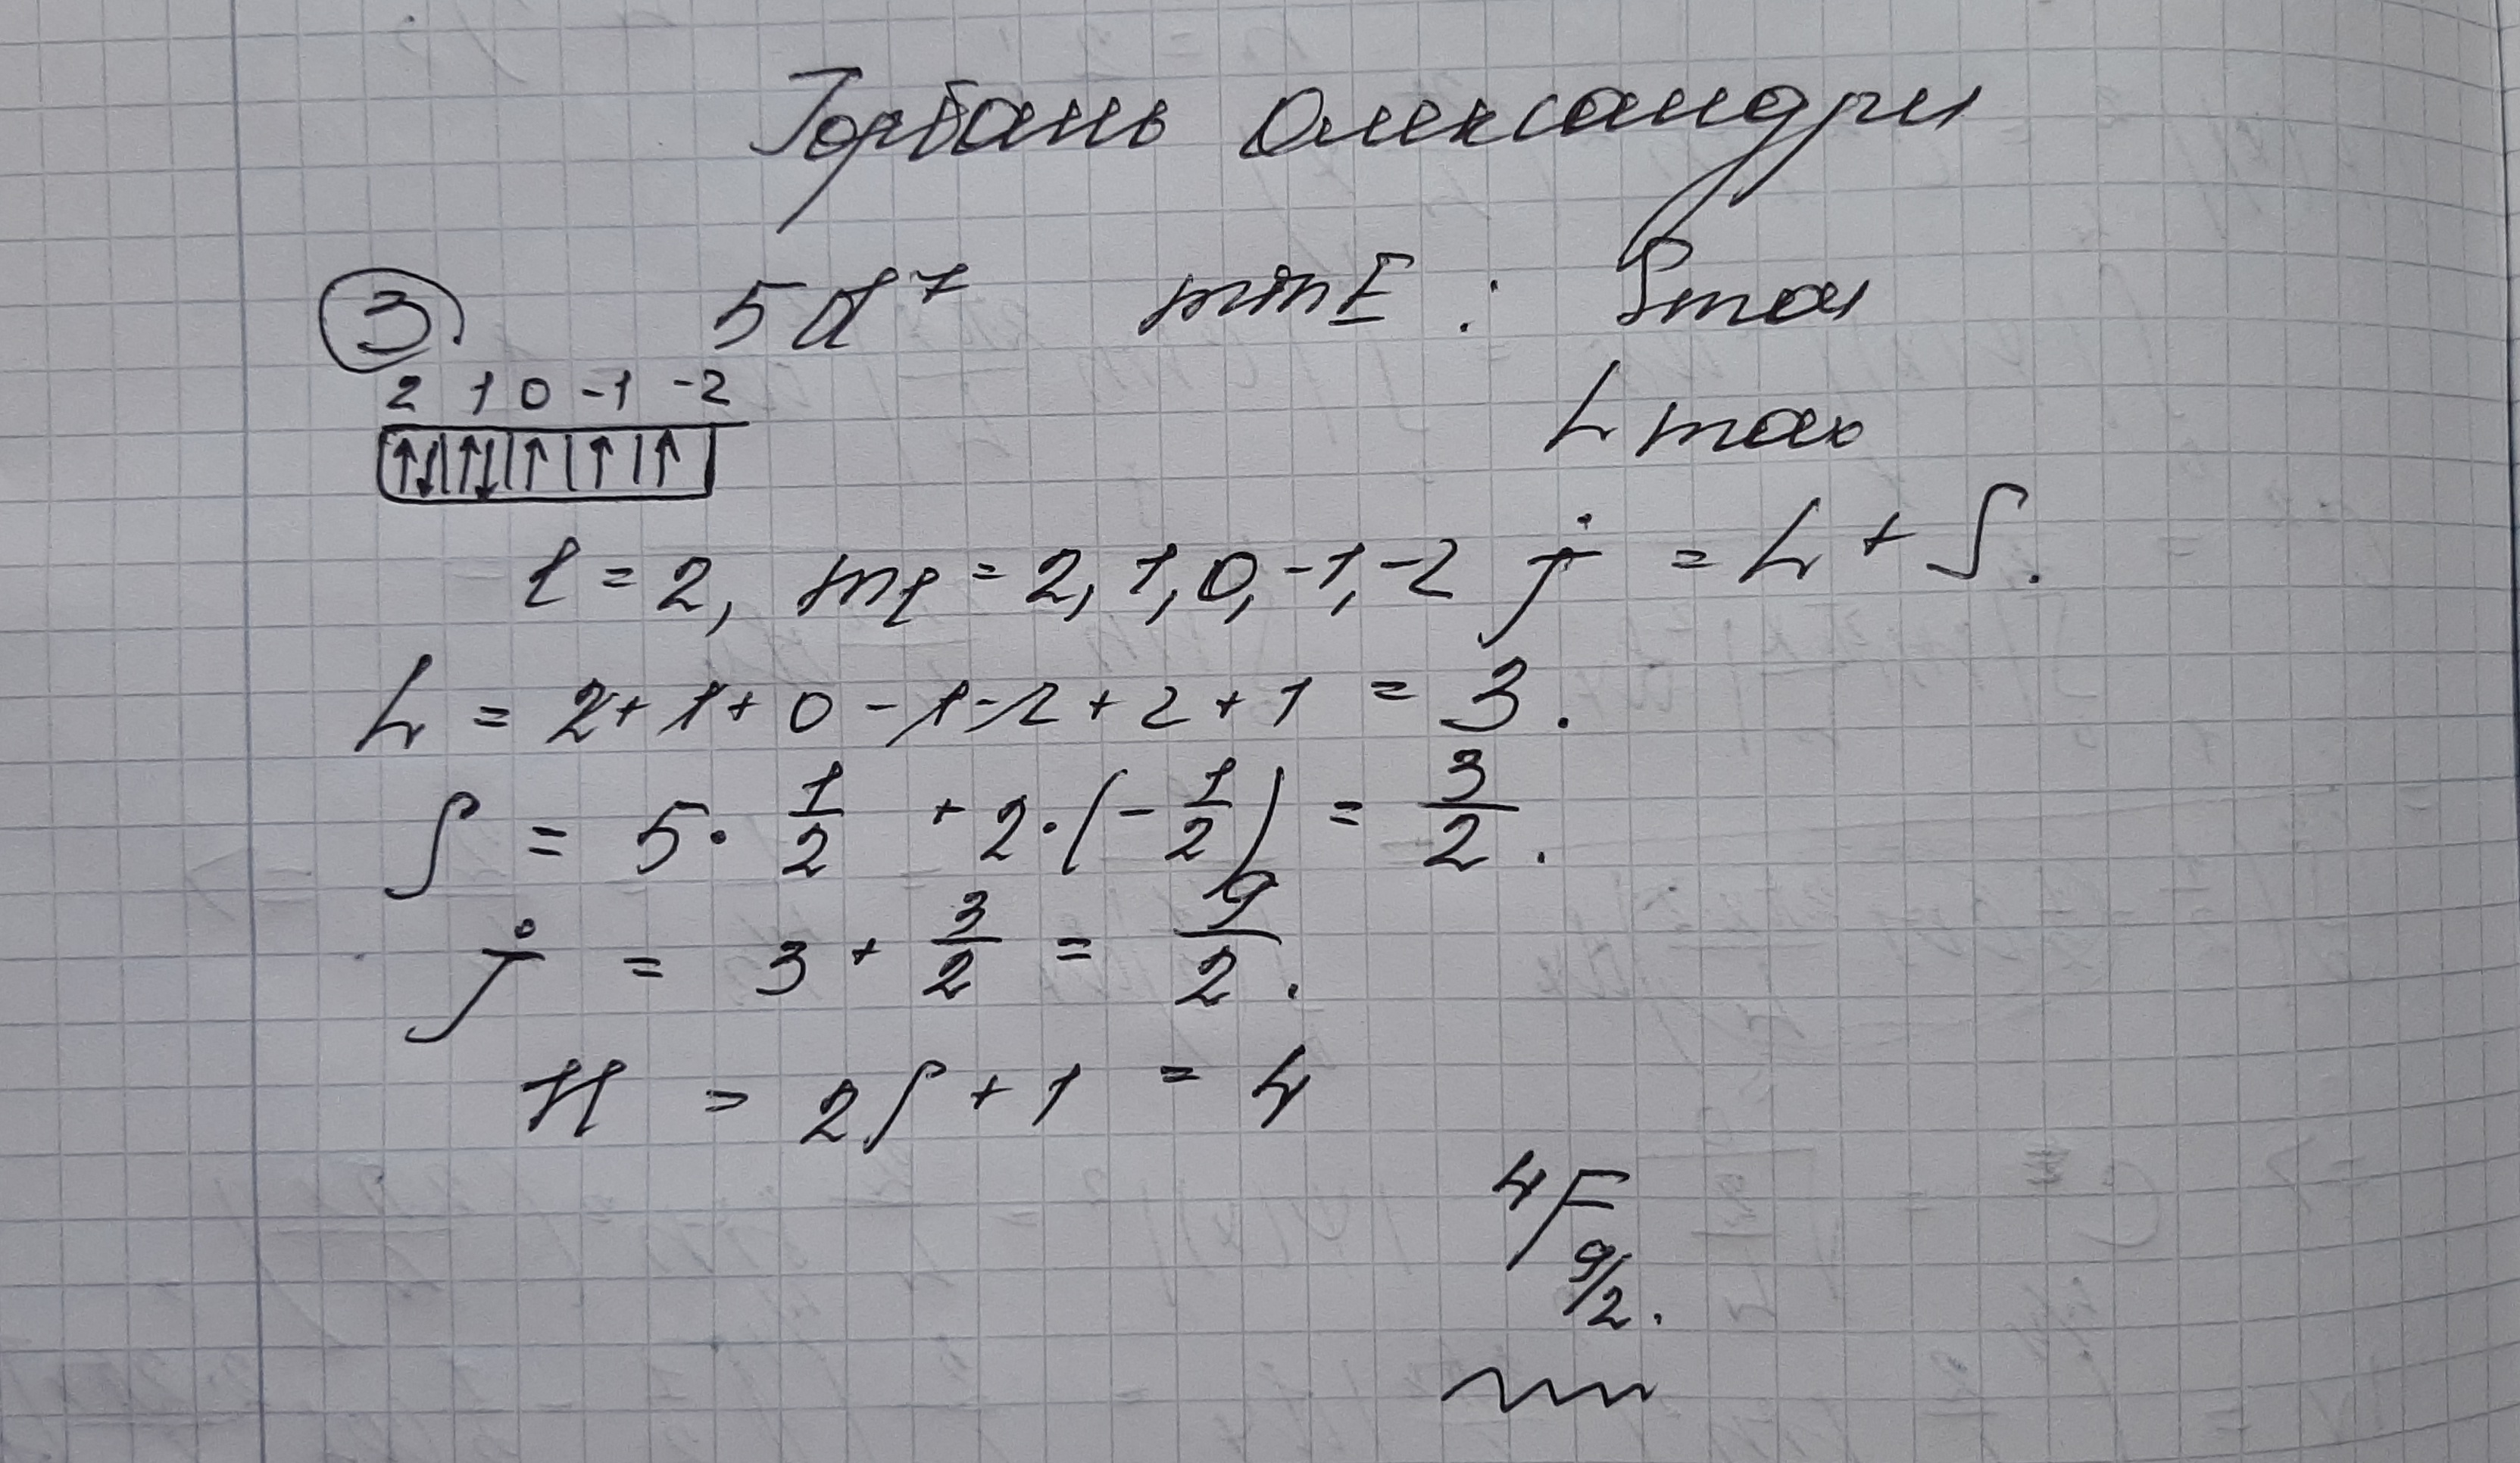 Горбань Олександри
3. 5d⁷ min E : Smax
2 1 0 -1 -2
Lmax
↑↓|↑↓|↑|↑|↑
l = 2, ml = 2, 1, 0, -1, -2 j = L + S.
L = 2 + 1 + 0 - 1 - 2 + 2 + 1 = 3.
S = 5 · 1/2 + 2 · (- 1/2) = 3/2.
j = 3 + 3/2 = 9/2.
ϰ = 2S + 1 = 4
⁴F 9/2.